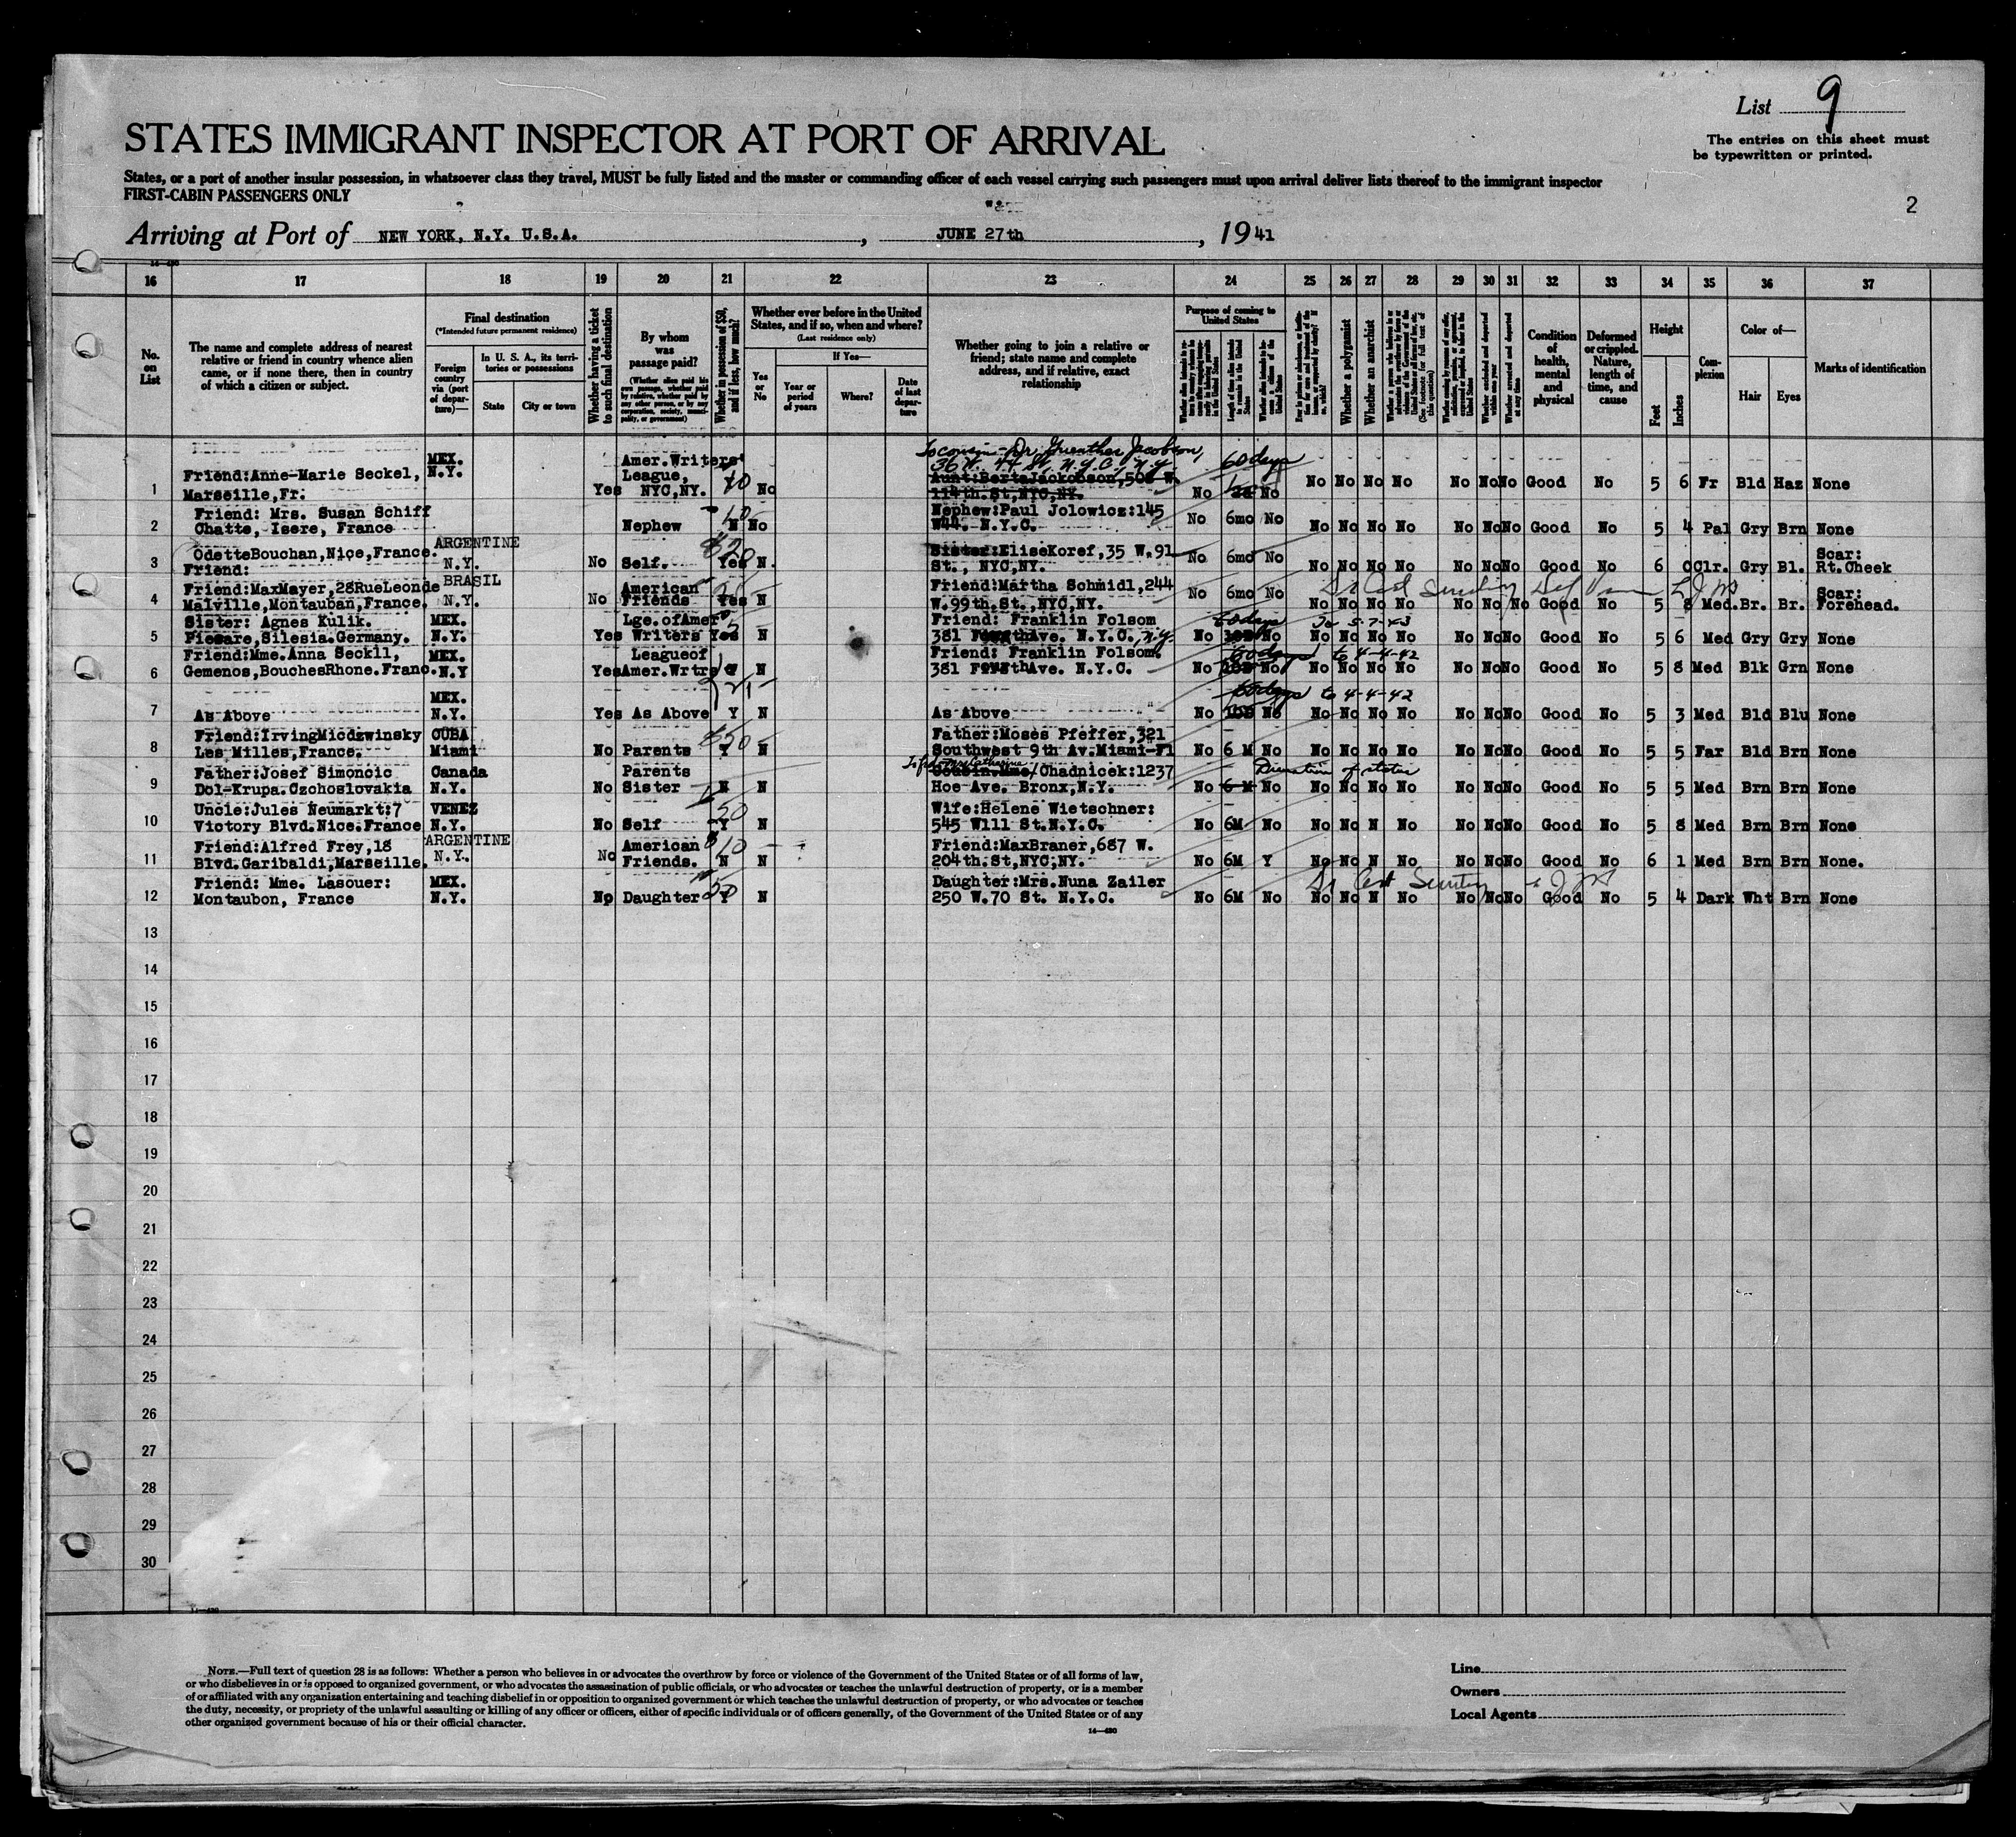 List 9
STATES IMMIGRANT INSPECTOR AT PORT OF ARRIVAL
The entries on this sheet must
be typewritten or printed.
States, or a port of another insular possession, in whatsoever class they travel, MUST be fully listed and the master or commanding officer of each vessel carrying such passengers must upon arrival deliver lists thereof to the immigrant inspector
FIRST-CABIN PASSENGERS ONLY
2
Arriving at Port of NEW YORK, N.Y. U.S.A. , JUNE 27th , 19 41
16 17 18 19 20 21 22 23 24 25 26 27 28 29 30 31 32 33 34 35 36 37
No. on List
The name and complete address of nearest relative or friend in country whence alien came, or if none there, then in country of which a citizen or subject.
Final destination
(*Intended future permanent residence)
Foreign country via (port of departure)—
In U. S. A., its territories or possessions
State
City or town
Whether having a ticket to such final destination
By whom was passage paid?
(Whether alien paid his own passage, whether paid by relative, whether paid by any other person, or by any corporation, society, municipality, or government)
Whether in possession of $50, and if less, how much?
Whether ever before in the United States, and if so, when and where?
(Last residence only)
Yes or No
If Yes—
Year or period of years
Where?
Date of last departure
Whether going to join a relative or friend; state name and complete address, and if relative, exact relationship
Purpose of coming to United States
Length of time alien intends to remain in the United States
Whether a polygamist
Whether an anarchist
Condition of health, mental and physical
Deformed or crippled. Nature, length of time, and cause
Height
Feet
Inches
Complexion
Color of—
Hair
Eyes
Marks of identification
To cousin - Dr. Guenther Jacobson,
MEX. Amer.Writers' 36 W. 44 St. N.Y.C., N.Y. 60 days
Friend:Anne-Marie Seckel, N.Y. League, Aunt:BertaJackobson,508 W.
1 Marseille,Fr. Yes NYC,NY. 10 No 114th.St,NYC,NY. No No No No No No No No No No Good No 5 6 Fr Bld Haz None
Friend: Mrs. Susan Schiff 10 Nephew:Paul Jolowicz:145
2 Chatte, Isere, France Nephew N No W44. N.Y.C. No 6mo No No No No No No No No Good No 5 4 Pal Gry Brn None
OdetteBouchan,Nice,France. ARGENTINE $20 Sister:EliseKoref,35 W.91 Scar:
3 Friend: N.Y. No Self. Yes N. St., NYC,NY. No 6mo No No No No No No No No Good No 6 0 Clr. Gry Bl. Rt.Cheek
Friend:MaxMayer,28RueLeonde BRASIL American Friend:Martha Schmidl,244 Scar:
4 Malville,Montauban,France. N.Y. No Friends Yes N W.99th.St.,NYC,NY. No 6mo No No No No No No No No Good No 5 8 Med. Br. Br. Forehead.
Sister: Agnes Kulik. MEX. Lge.ofAmer 5 Friend: Franklin Folsom 60 days To 5-7-43
5 Piesare,Silesia.Germany. N.Y. Yes Writers Yes N 381 FourthAve. N.Y.C., N.Y. No No No No No No No No No Good No 5 6 Med Gry Gry None
Friend:Mme.Anna Seckll, MEX. Leagueof Friend: Franklin Folsom. 60 days to 4-4-42
6 Gemenos,BouchesRhone.Franc. N.Y Yes Amer.Wrtrs N 381 FourthAve. N.Y.C. No No No No No No No No No Good No 5 8 Med Blk Grn None
MEX. 60 days to 4-4-42
7 As Above N.Y. Yes As Above Y N As Above No No No No No No No No No Good No 5 3 Med Bld Blu None
Friend:IrvingMiodzwinsky CUBA $50 Father:Moses Pfeffer,321
8 Les Milles,France. Miami No Parents Y N Southwest 9th Av.Miami-Fl No 6 M No No No No No No No No Good No 5 5 Far Bld Brn None
Father:Josef Simoncic Canada Parents Cousin.Mme. Chadnicek:1237 Duration of status
9 Dol-Krupa.Czchoslovakia N.Y. No Sister N N Hoe Ave. Bronx,N.Y. No 6 M No No No No No No No No Good No 5 5 Med Brn Brn None
Uncle:Jules Neumarkt:7 VENEZ 50 Wife:Helene Wietschner:
10 Victory Blvd.Nice.France N.Y. No Self Y N 545 W111 St.N.Y.C. No 6M No No No N No No No No Good No 5 8 Med Brn Brn None
Friend:Alfred Frey,18 ARGENTINE American $10 Friend:MaxBraner,687 W.
11 Blvd.Garibaldi,Marseille. N.Y. No Friends. N N 204th.St,NYC,NY. No 6M Y No No N No No No No Good No 6 1 Med Brn Brn None.
Friend: Mme. Lasouer: MEX. Daughter:Mrs.Nuna Zailer
12 Montaubon, France N.Y. No Daughter 50 Y N 250 W.70 St. N.Y.C. No 6M No No No N No No No No Good No 5 4 Dark Wht Brn None
13
14
15
16
17
18
19
20
21
22
23
24
25
26
27
28
29
30
NOTE.—Full text of question 28 is as follows: Whether a person who believes in or advocates the overthrow by force or violence of the Government of the United States or of all forms of law,
or who disbelieves in or is opposed to organized government, or who advocates the assassination of public officials, or who advocates or teaches the unlawful destruction of property, or is a member
of or affiliated with any organization entertaining and teaching disbelief in or opposition to organized government or which teaches the unlawful destruction of property, or who advocates or teaches
the duty, necessity, or propriety of the unlawful assaulting or killing of any officer or officers, either of specific individuals or of officers generally, of the Government of the United States or of any
other organized government because of his or their official character.
14—430
Line
Owners
Local Agents